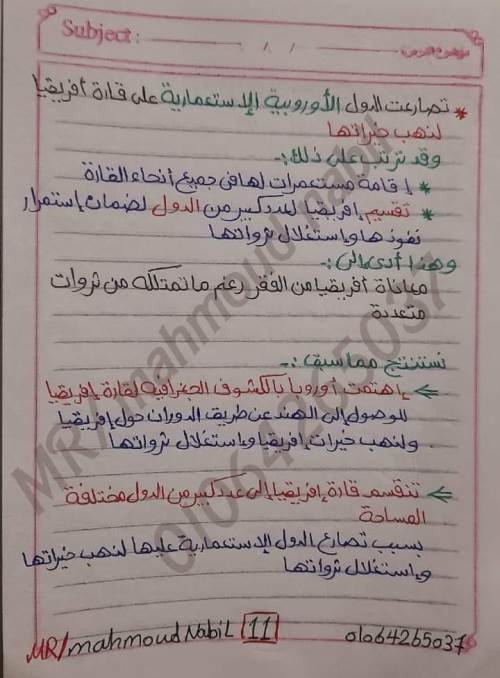 Subject:
/ /
موضوع الدرس
* تصارعت الدول الأوروبية الإستعمارية على قارة أفريقيا
لنهب خيراتها
وقد ترتب على ذلك :-
* إقامة مستعمرات لها فى جميع أنحاء القارة
* تقسيم إفريقيا لعدد كبير من الدول لضمان إستمرار
نفوذها وإستغلال ثرواتها
وهذا أدى إلى :-
معاناة أفريقيا من الفقر رغم ما تمتلكه من ثروات
متعددة
نستنتج مما سبق :-
⇐ إهتمت أوروبا بالكشوف الجغرافية لقارة إفريقيا
للوصول إلى الهند عن طريق الدوران حول إفريقيا
ولنهب خيرات إفريقيا وإستغلال ثرواتها
⇐ تنقسم قارة إفريقيا إلى عدد كبير من الدول مختلفة
المساحة
بسبب تصارع الدول الإستعمارية عليها لنهب خيراتها
وإستغلال ثرواتها
MR/mahmoud Nabil 11 01064265037
MR/mahmoud nabil
01064265037